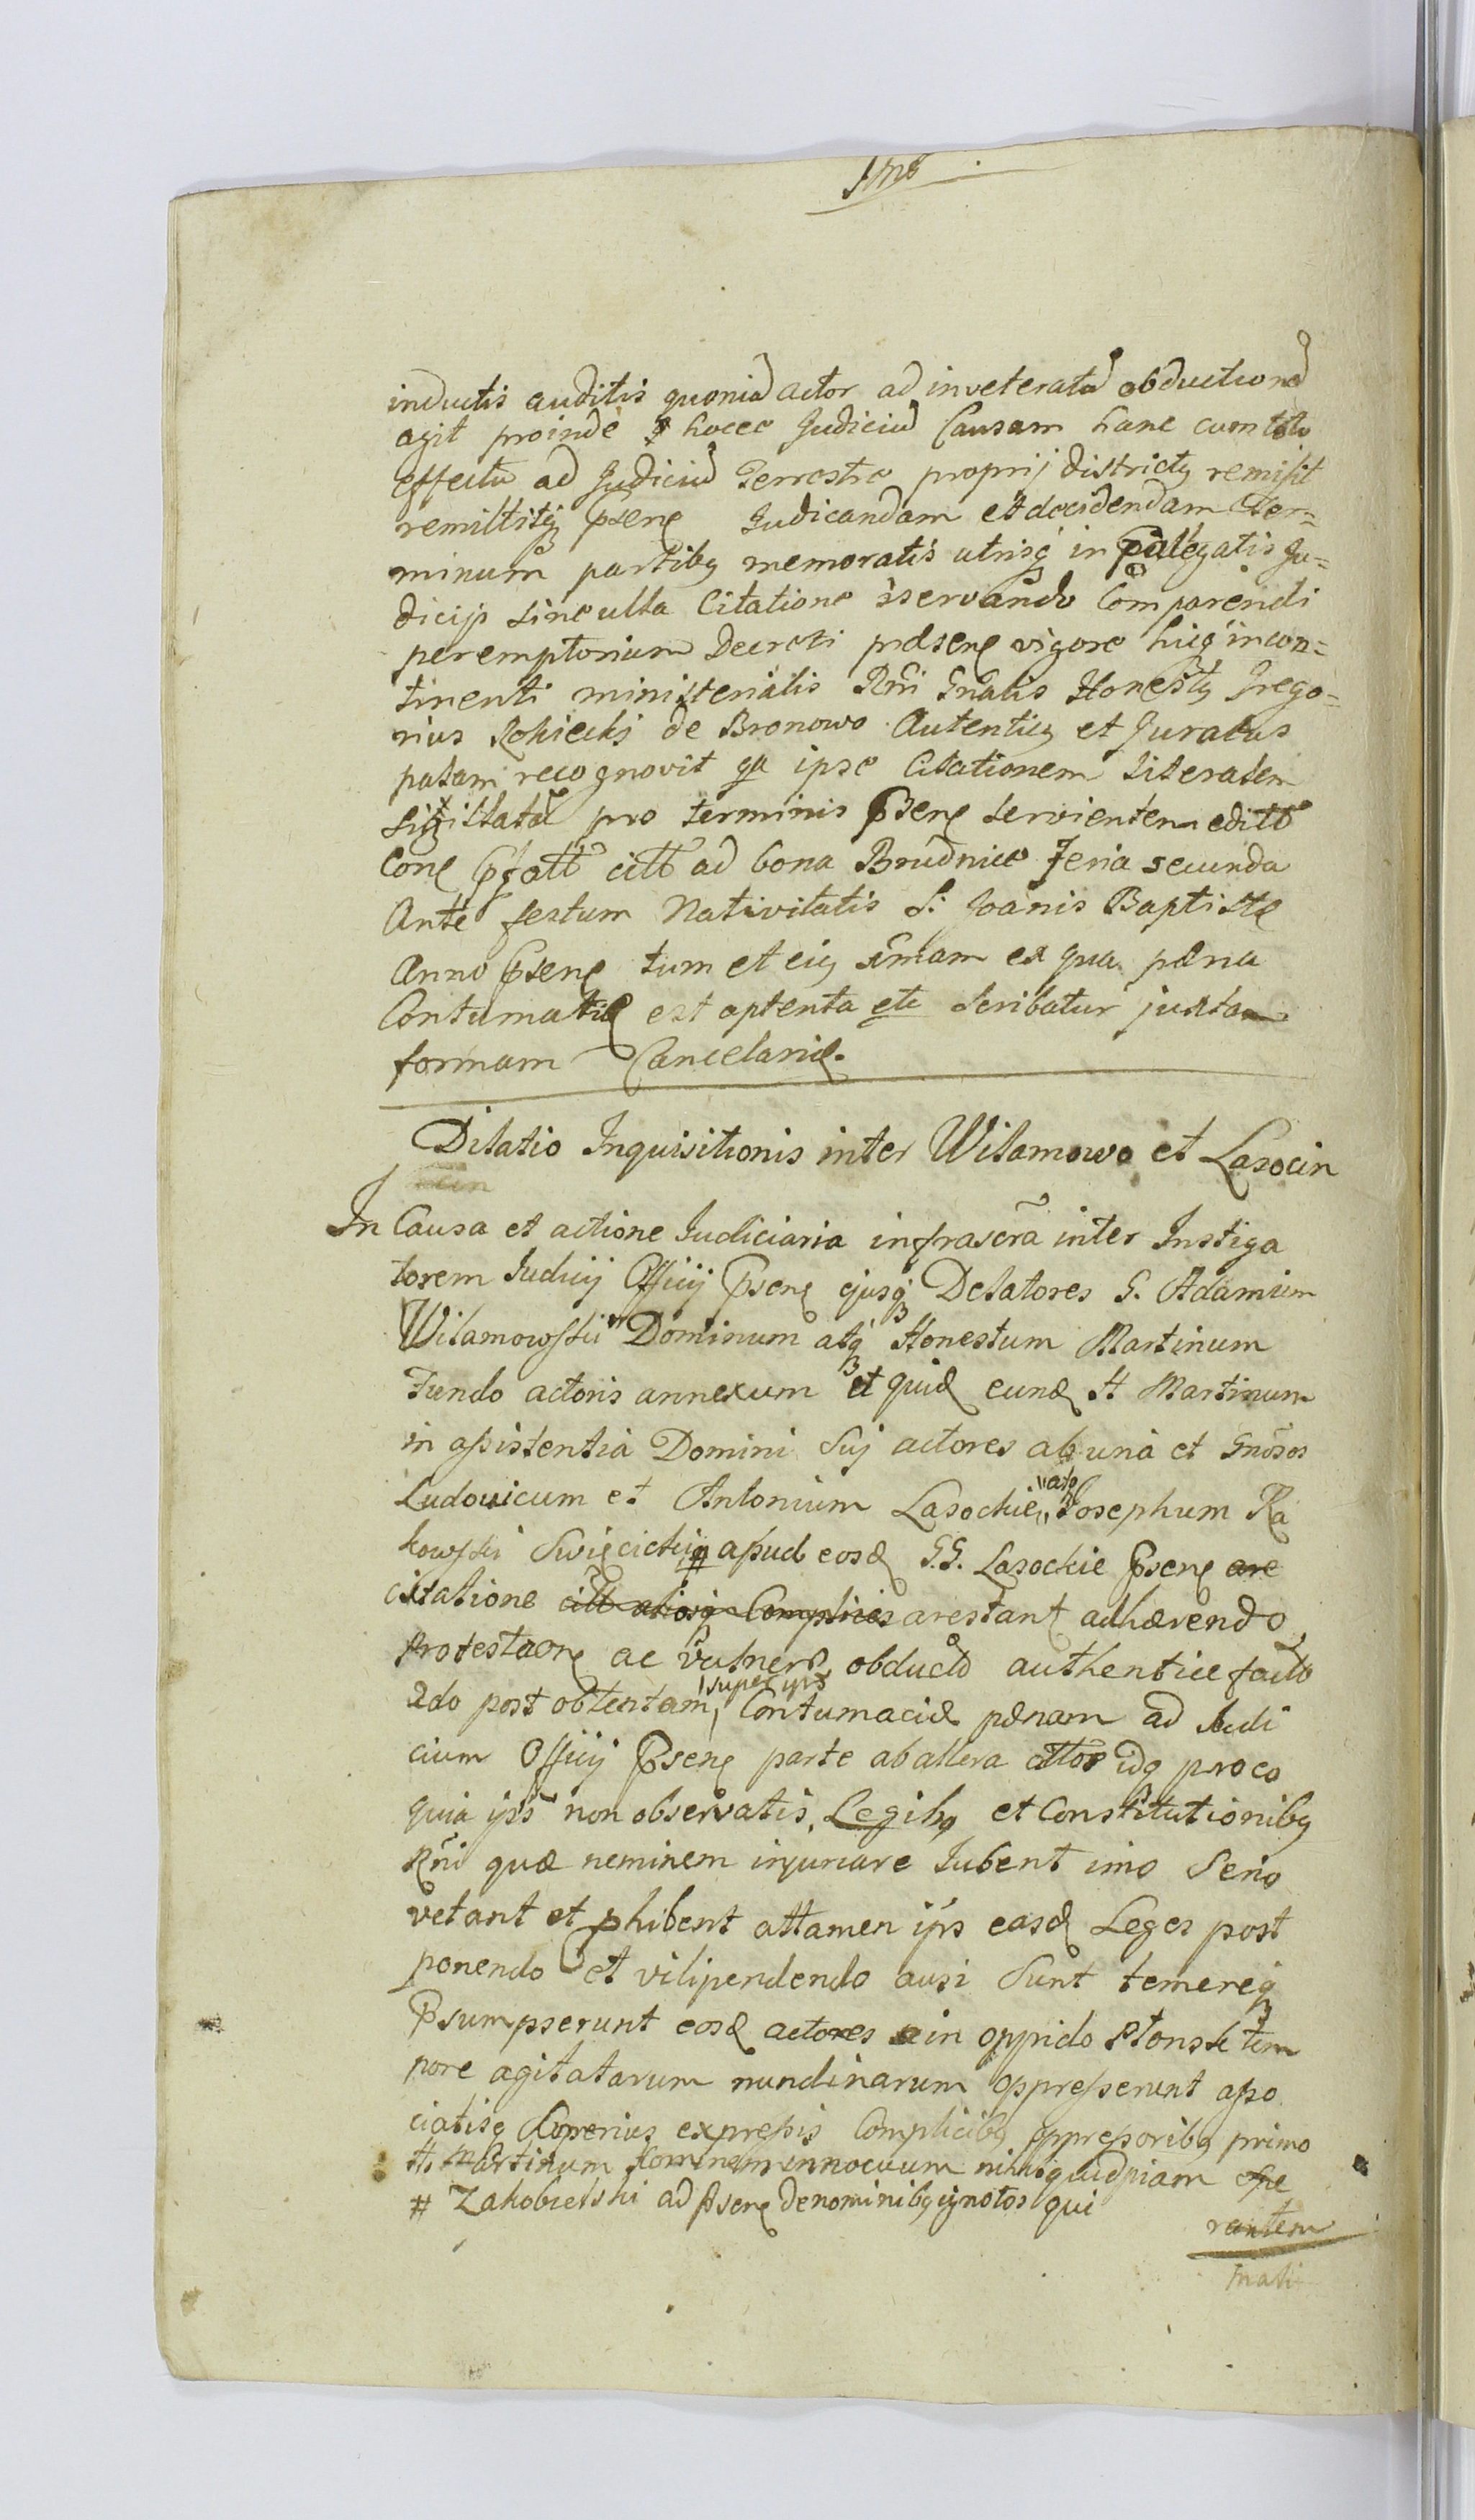 inductis auditis quoniã actor ad inveteratã obductionẽ
agit proinde hocce Judiciũ Causam hanc cum toto
effectu ad Judiciũ Terrestre proprij districtq remisit
remittitq pserne Judicandam et decidendam ter=
minum partibq memoratis utrisq in Ju=
dicijs sine ulla Citatione servando Comparendi
peremptorium Decreti præsene vigore huiq incon=
tinenti ministerialis Rñi Gnalis Honestq Grego=
rius Rokiecki de Bronowo Autenticq et Juratus
palam recognovit qa ipse Citationem literalem
sigillatã pro terminis psene servientem editt
Cone citt ad bona Brudnice Feria secunda
Ante festum Nativitatis S: Joanis Baptistę
Anno psene tum et eiq ex qua pæna
Contumatię est optenta etc Scribatur juxta
formam Cancelarię.
Dilatio Inquisitionis inter Wilamowo et Lasocin
In Causa et actione Judiciaria infrascrã inter Instiga
torem Judicij Officij psene ejusq Delatores G. Adamum
Wilamowski Dominum atq Honestum Martinum
Fundo actoris annexum et quid eund H Martinum
in assistentia Domini Sui actores ab una et Gnosos
Ludovicum et Antonium Lasockie "atq" Josephum Ra
kowski # apud eosd G.G. Lasockie psene are
citatione citt aliosq Complices arestant adhærendo
Protestaone ac vulnerũ obductõ authentice facto
ædo post obtentam super ips Contumaciæ pænam ad Judi
cium Officij psene parte ab altera cittos idq pro eo
quia ipsi non observatis Legibq et Constitutionibq
Rñi quæ neminem injuriare Jubent imo Serio
vetant et phibent attamen ipsi easd Leges post
ponendo et vilipendendo ausi Sunt temereq
Psumpserunt eosd actores in oppido Płonsk tem
pore agitatarum nundinarum oppresserunt asso
ciatisq Superius expressis Complicibq oppressoribq primo
H. Martinum hominem innocuum nihil quidpiam spe
# Zakobielski ad psene de nominibq ignotos qui
rantem
mali